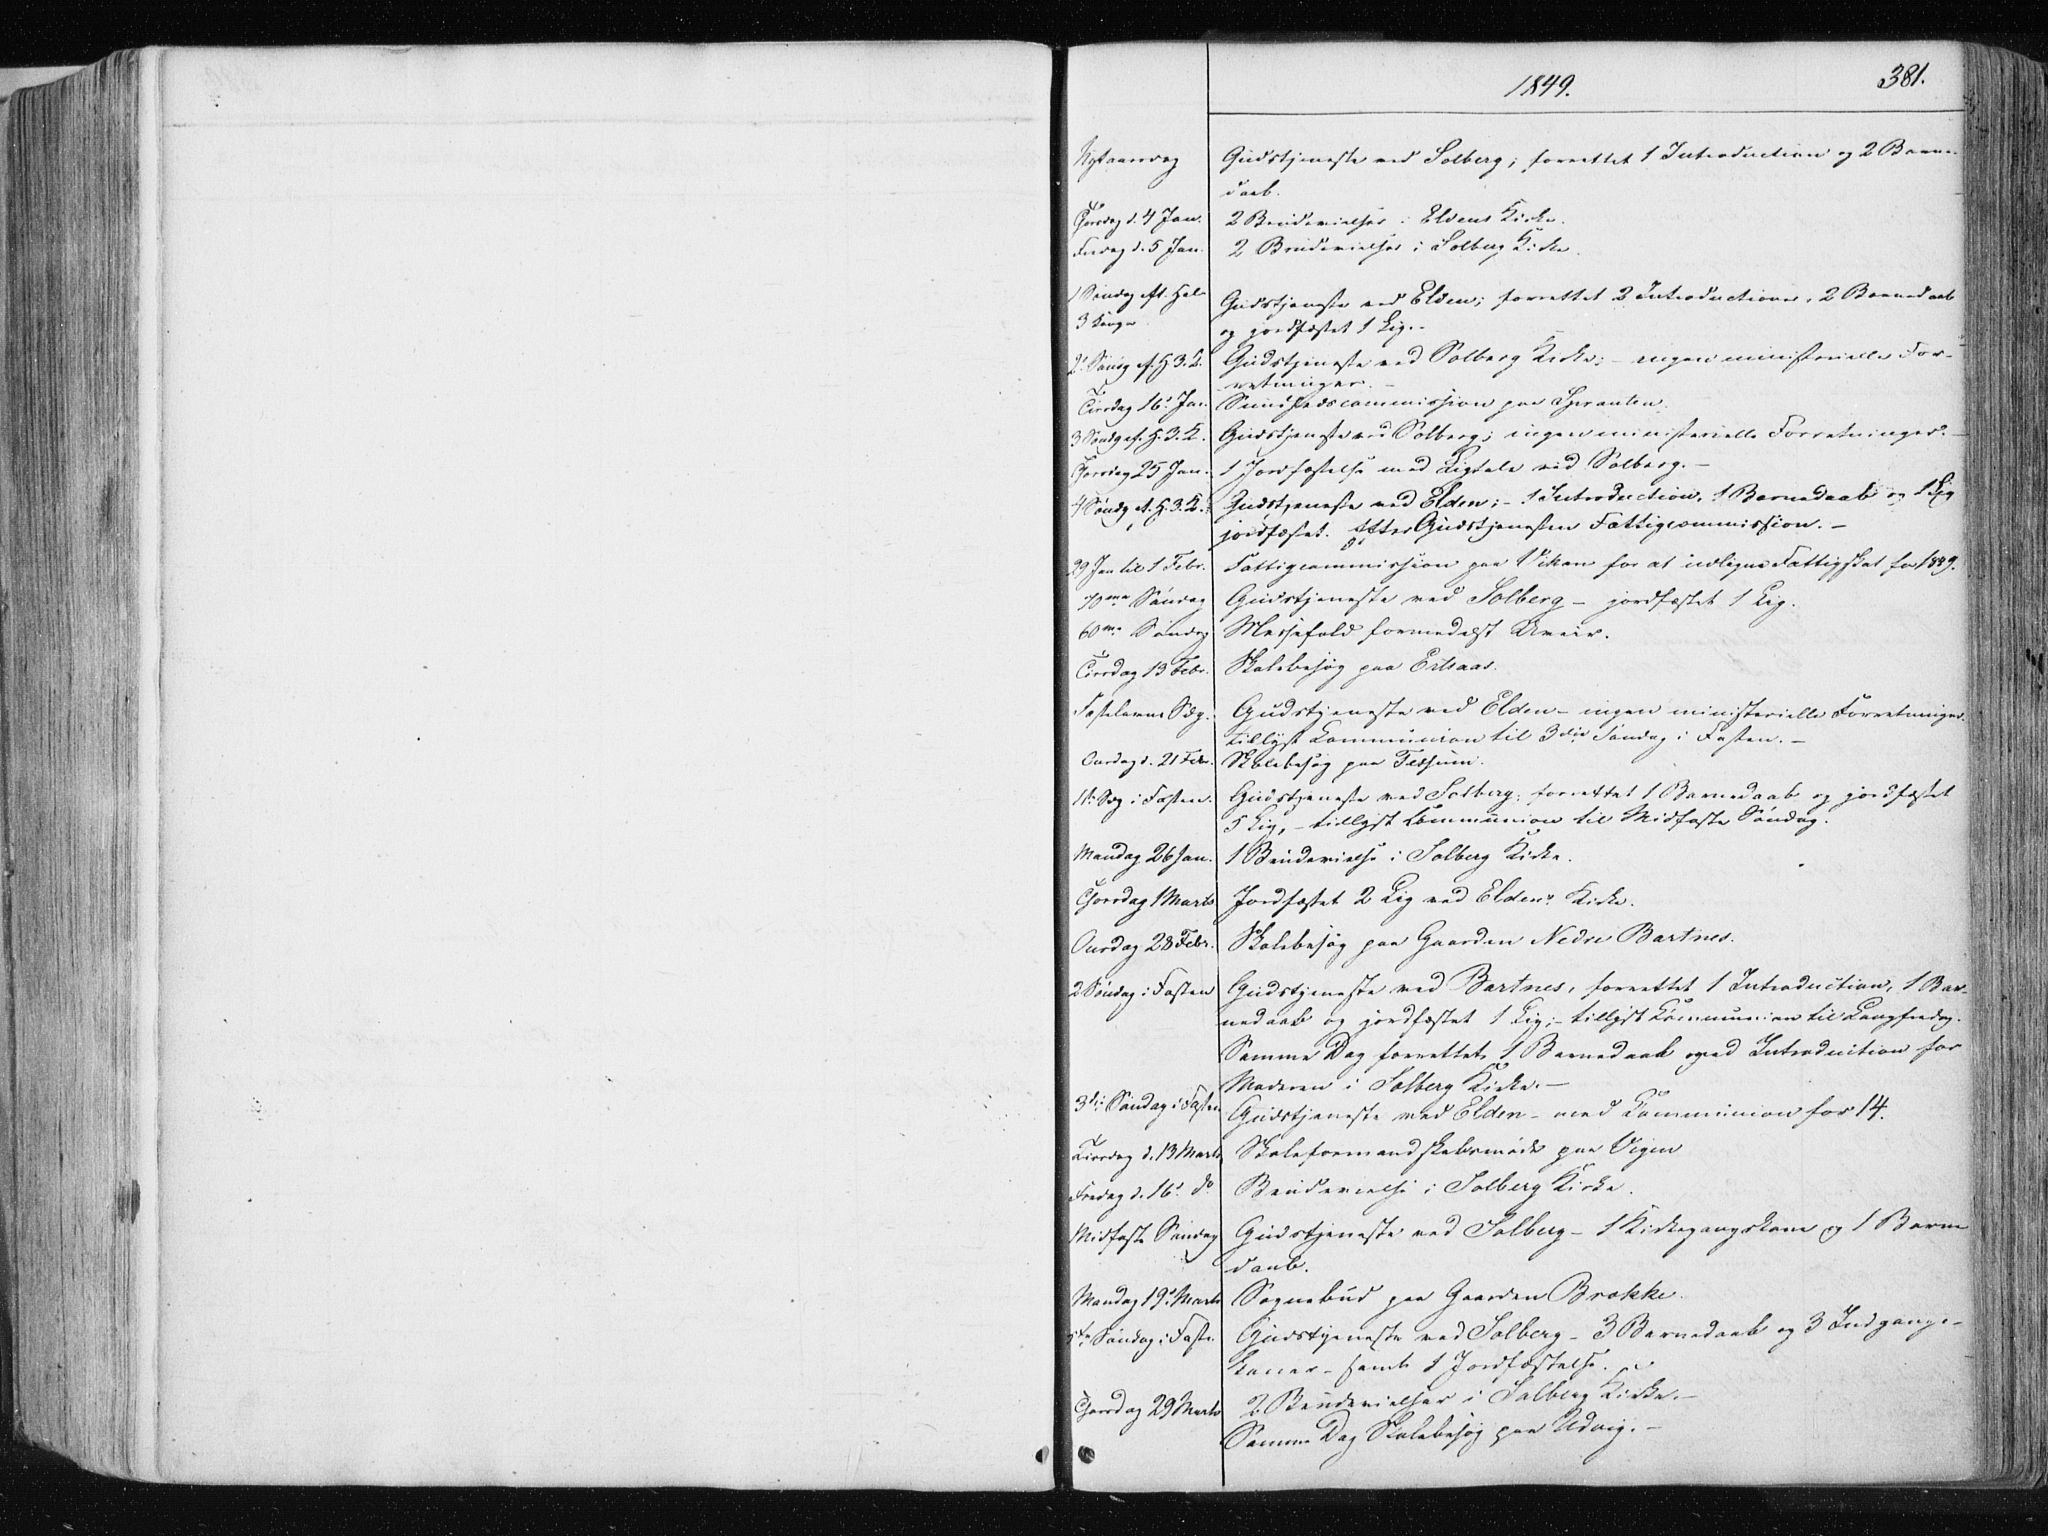 1849.
381.
Nytaarsdag Gudstjeneste ved Solberg; forrettet 1 Introduction og 2 Barne-
daab.
Thorsdag d. 4 Jan. 2 Brudevielser i Eldens Kirke.
Fredag d. 5 Jan. 2 Brudevielser i Solberg Kirke.
1 Søndag eft. Hel. Gudstjeneste ved Elden; forrettet 2 Introductioner, 2 Barnedaab
3 Konger og jordfæstet 1 Lig.-
2. Sønd. ef. H. 3. K. Gudstjeneste ved Solberg Kirke; - ingen ministerielle For-
retninger. -
Tirsdag 16. Jan. Sundhedscommission paa
3 Søndg ef. H. 3. K. Gudstjeneste ved Solberg; ingen ministerielle Forretninger. -
Torsdag 25 Jan. 1 Jordfæstelse med Ligtale ved Solberg. -
4 Søndg ef. H. 3. K. Gudstjeneste ved Elden; - 1 Introduction, 1 Barnedaab og 1 Lig
jordfæstet. Efter Gudstjenesten Fattigcommission. -
29 Jan til 1 Febr. Fattigcommission paa Vikan for at udligne Fattigskat for 1849.
70me Søndag Gudstjeneste ved Solberg - jordfæstet 1 Lig.
60me Søndag Messefald formedelst Uveir.
Tirsdag 13 Febr. Skolebesøg paa Ertsaas.
Fastelavns Sdg. Gudstjeneste ved Elden - ingen ministerielle Forretninger.
tillyst Communion til 3die Søndag i Fasten. -
Onsdag d. 21 Febr. Skolebesøg paa
1ste Sdg i Fasten. Gudstjeneste ved Solberg; forrettet 1 Barnedaab og jordfæstet
5 Lig, - tillyst Communion til Midfaste Søndag.
Mandag 26 Jan. 1 Brudevielse i Solberg Kirke.
Thorsdag 1 Marts Jordfæstet 2 Lig ved Eldens Kirke.
Onsdag 28 Febr. Skolebesøg paa Gaarden Nedre Bartnes.
2 Søndag i Fasten Gudstjeneste ved Bartnes, forrettet 1 Introduction, 1 Bar-
nedaab og jordfæstet 1 Lig; - tillyst Communion til Langfredag.
Samme Dag forrettet 1 Barnedaab med Introduction for
Moderen i Solberg Kirke. -
3die Søndag i Fasten Gudstjeneste ved Elden - med Communion for 14.
Tirsdag d. 13 Marts Skoleformandskabsmøde paa Vigen
Fredag d. 16. do Brudevielse i Solberg Kirke.
Midfaste Søndag Gudstjeneste ved Solberg - 1 Kirkegangskone og 1 Barne
daab.
Mandag 19. Marts Sognebud paa Gaarden Brække.
5te Søndag i Faste. Gudstjeneste ved Solberg - 3 Barnedaab og 3 Indgangs-
koner - samt 1 Jordfæstelse.
Thorsdag 29 Marts 2 Brudevielser i Solberg Kirke. -
Samme Dag Skolebesøg paa Udvig. -